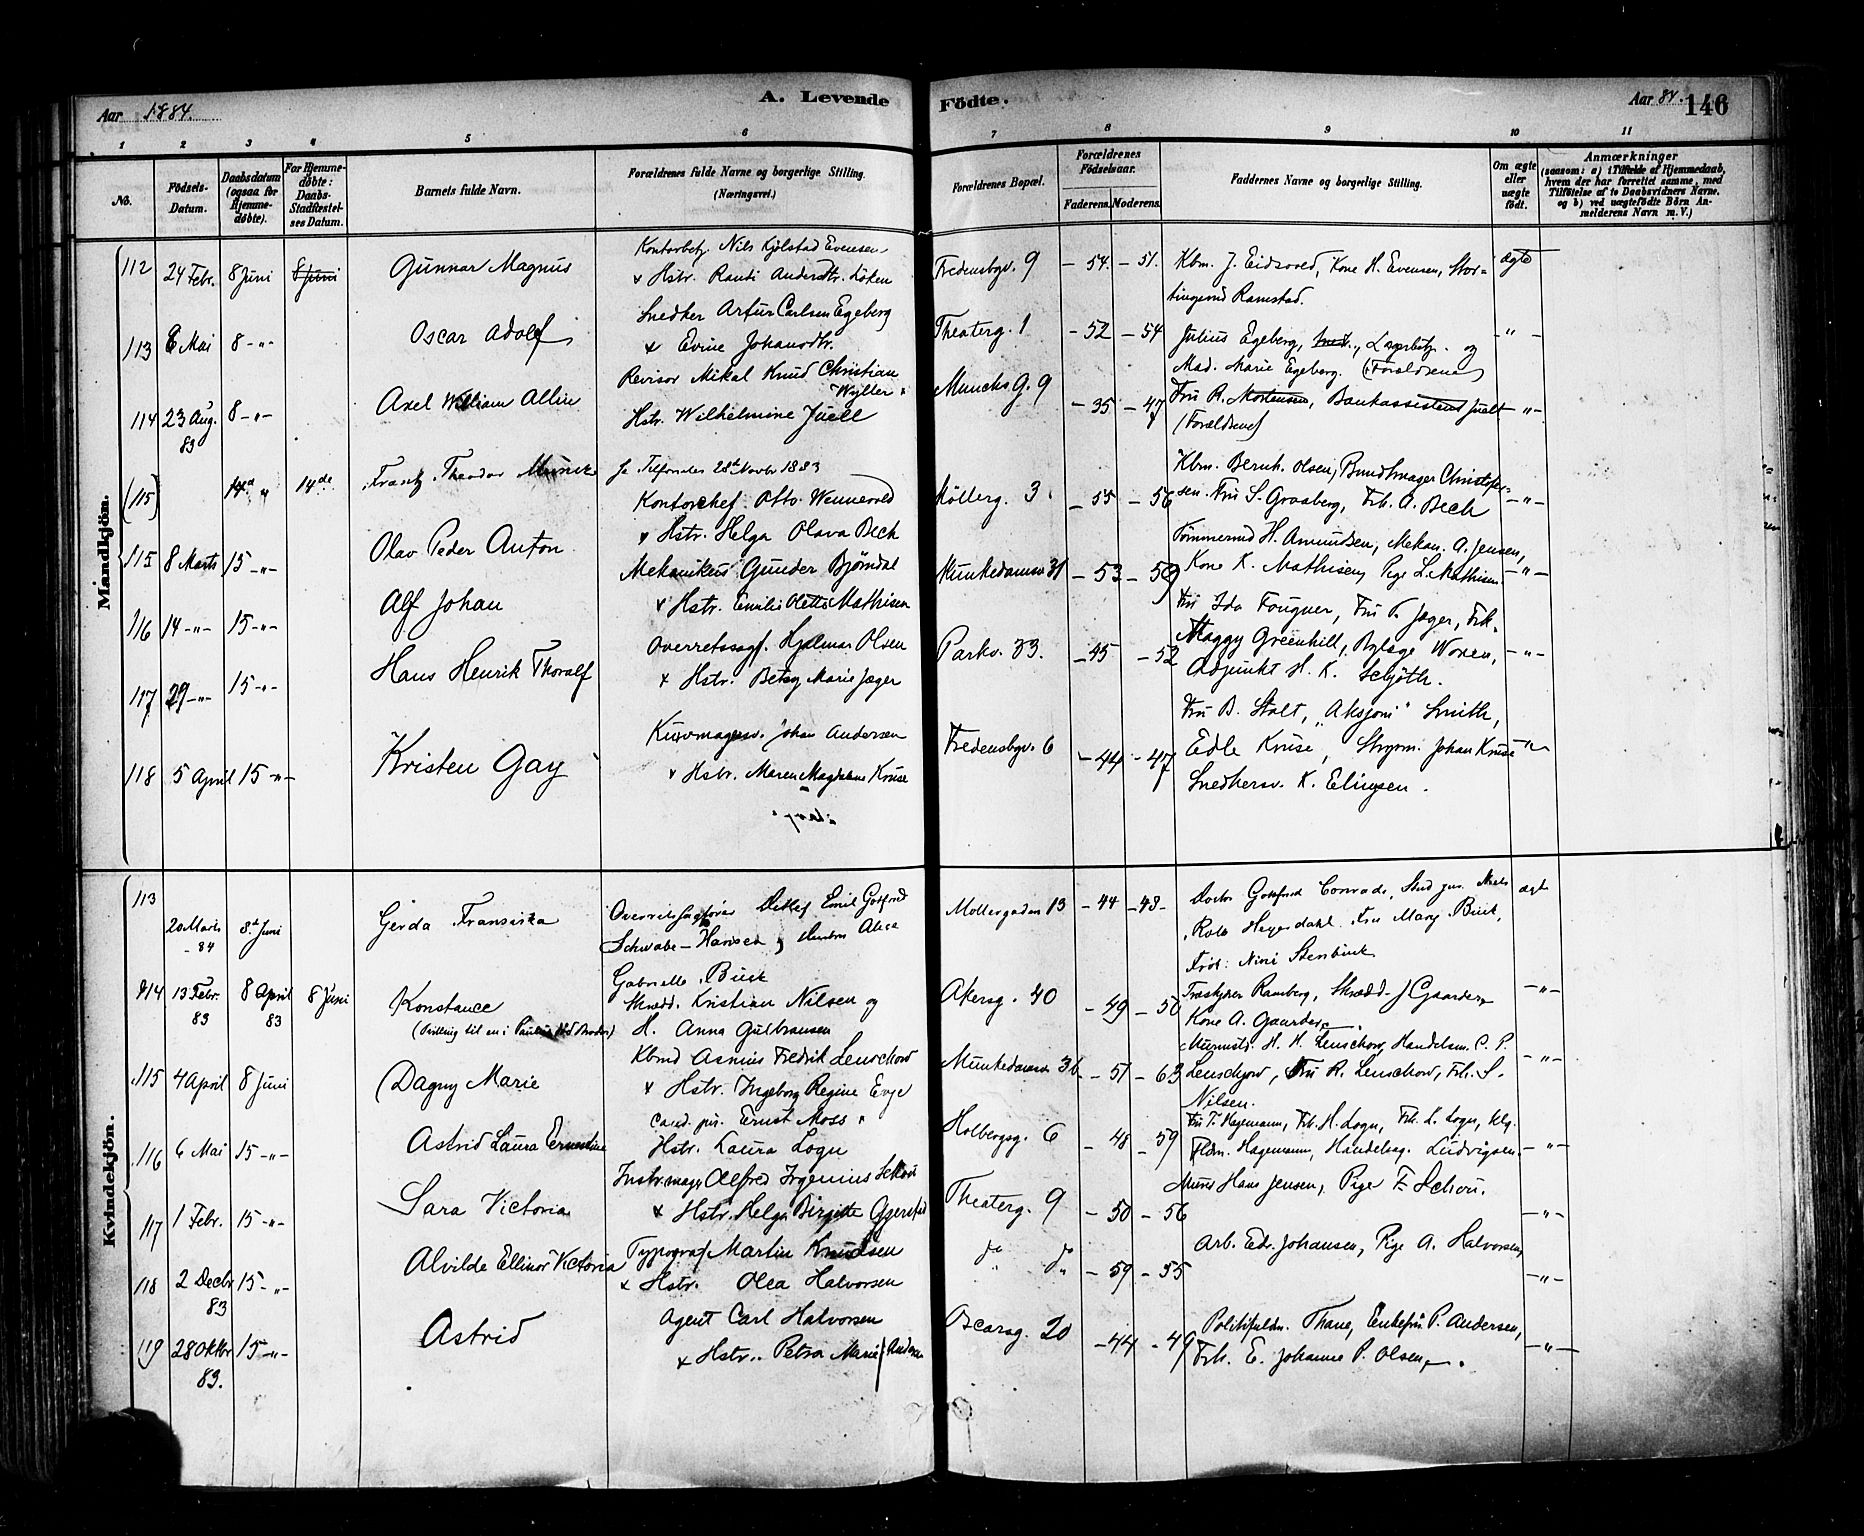 Aar 1884.
A. Levende Födte.
Aar 84. 146
1 2 3 4 5 6 7 8 9 10 11
No.
Födsels-Datum.
Daabsdatum (ogsaa for Hjemmedöbte).
For Hjemmedöbte: Daabs-Stadfæstelses Datum.
Barnets fulde Navn.
Forældrenes fulde Navne og borgerlige Stilling. (Næringsvei.)
Forældrenes Bopæl.
Forældrenes Födselsaar.
Faderens. Moderens.
Faddernes Navne og borgerlige Stilling.
Om ægte eller uægte födt.
Anmærkninger
(saasom: a) i Tilfælde af Hjemmedaab, hvem der har forrettet samme, med Tilföielse af to Daabsvidners Navne. og b) ved uægtefödte Börn Anmelderens Navn m. V.)
Mandkjön.
112 24 Febr. 8 Juni 8 Juni Gunnar Magnus
Kontorbetj. Nils Kjölstad Evensen
Hstr. Randi Andersdtr. Löken
Fredensbgv. 9 - 54. - 51.
Kbm. J. Eidsvold, Kone H. Evensen, Stor-
tingsmd Ramstad.
ægte
113 6 Mai 8 -"- Oscar Adolf
Snedker Artur Carlsen Egeberg
Evine Johansdtr.
Theaterg. 1 - 52 - 54
Julius Egeberg, Lagerbetj. og
Mad. Marie Egeberg. (Forældrene)
"
114 23 Aug. 83 8 -"- Axel William Allin
Revisor Mikal Knud Christian
Wyller
Hstr. Wilhelmine Juell
Munchs G. 9 - 35 - 47
Fru R. Mortensen, Bankassistent Juell
(Forældrene)
-"-
(115) 14de Frantz Theodor
Se Tilförsler 28de Novbr 1883
115 8 Marts 15 -"- Olav Peder Anton
Kontorchef Otto Wennevold
Hstr. Helga Olava Bech
Möllerg. 3 - 55 - 56
Kbm. Bernh. Olsen, Bundtmager Christofer-
sen. Fru S. Graaberg, Frk. A. Bech
-"-
116 14 -"- 15 -"- Alf Johan
Mekanikus Gunder Bjørndal
Hstr. Emilie Olette Mathisen
Munkedamsv 31 - 53 - 59
Tømmermd H. Amundsen, Mekan. A. Jensen,
Kone K. Mathisen, Pige L. Mathisen
-"-
117 29 -"- 15 -"- Hans Henrik Thoralf
Overretssagf. Hjalmar Olsen
Hstr. Betsy Marie Jæger
Parkv. 33. - 45 - 52
Fru Ida Fougner, Fru F. Jæger, Frk.
Maggy Greenhill, Woxen,
Adjunkt H. K. Schjöth.
-"-
118 5 April 15 -"- Kristen Gay
Kurvmagersv. Johan Andersen
Hstr. Maren Magdalene Kruse
Fredensbgv. 6 - 44 - 47
Fru B. Stalt, "Aksjoni" Smith,
Edle Kruse, Styrm. Johan Kruse
Snedkersv. K. Elingsen.
-"-
Kvindekjön.
113 20 Marts - 84 8de Juni Gerda Fransiska
Overretssagförer Detlef Emil Gotfred
Schwabe-Hansen, Hustru Alice
Gabrielle Buck
Mollergaden 13 - 44 - 48 -
Doctor Gottfred Conradi, Stud jur. Niels
Rolv Heyerdahl. Fru Mary Buck,
Frök: Nini Stenbuck
ægte
114 13 Febr. 83 8 April 83 8 Juni Konstance
(Tvilling til en i)
Skrædd. Kristian Nilsen og
H. Anna Gulbransen
Akersg. 40 - 49 - 50
Træskjærer Ramberg, Skrædd. J Gaarder,
Kone A. Gaarder.
-"-
115 4 April 8 Juni Dagny Marie
Kbmd Asmus Fredrik Lenschow
Hstr. Ingeborg Regine Evje
Munkedamsv 36 - 51 - 63
Murmstr. H. H. Lenschow, Handelsm. C. P.
Lenschow, Fru R. Lenschow, Frk. S.
Nilsen.
-"-
116 6 Mai 15 -"- Astrid Laura Ernestine
Cand. jur. Ernst Moss
Hstr. Laura Logn
Holbergsg. 6 - 48 - 59
Fru T. Hagemann, Frk. H. Logn, Frk. L. Logn,
Hagemann, Handelsag. Ludvigsen.
-"-
117 1 Febr. 15 -"- Sara Victoria
Instr.mager Alfred Irgenius Schou
Hstr. Helga Birgitte Gjerefsd
Theaterg. 9 - 50 - 56
Murer Hans Jensen, Pige E Schou.
-"-
118 2 Decbr 83 15 -"- Alvilde Ellinor Victoria
Typograf Martin Knudsen
Hstr. Olea Halvorsen
do do - 59 - 55
Arb. Edv. Johansen, Pige A. Halvorsen,
-"-
119 28 Oktbr 83. 15 -"- Astrid
Agent Carl Halvorsen
Hstr. Petra Marie Andersen
Oscarsg. 20 - 44 - 49
Politifuldm. Thane, Enkefru P. Andersen,
Frk. E. Johanne P. Olsen.
-"-